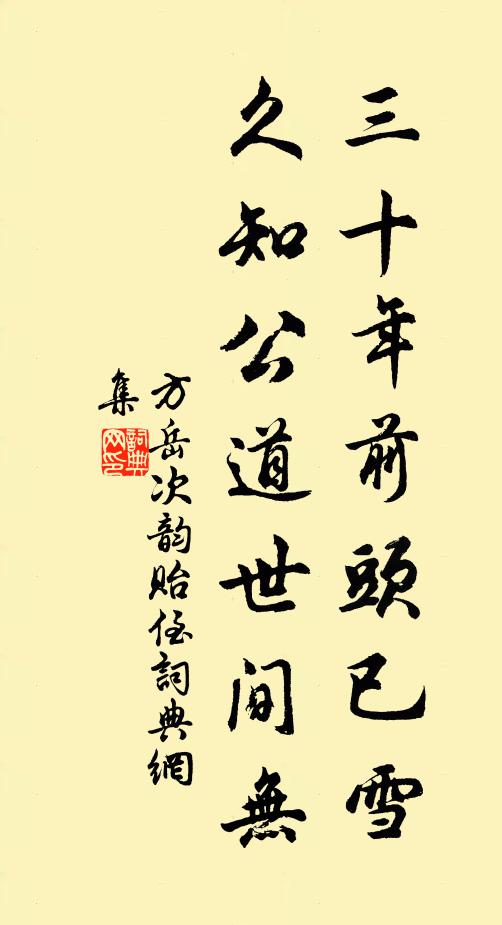 三十年前頭已雪
久知公道世間無
方岳次韵貽侄詞典網
集
詞典
网印